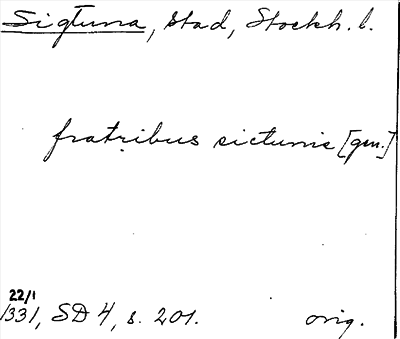 Sigtuna, stad, Stockh. l.
fratribus sictunis [gen.]
22/1
1331, SD 4, s. 201. orig.